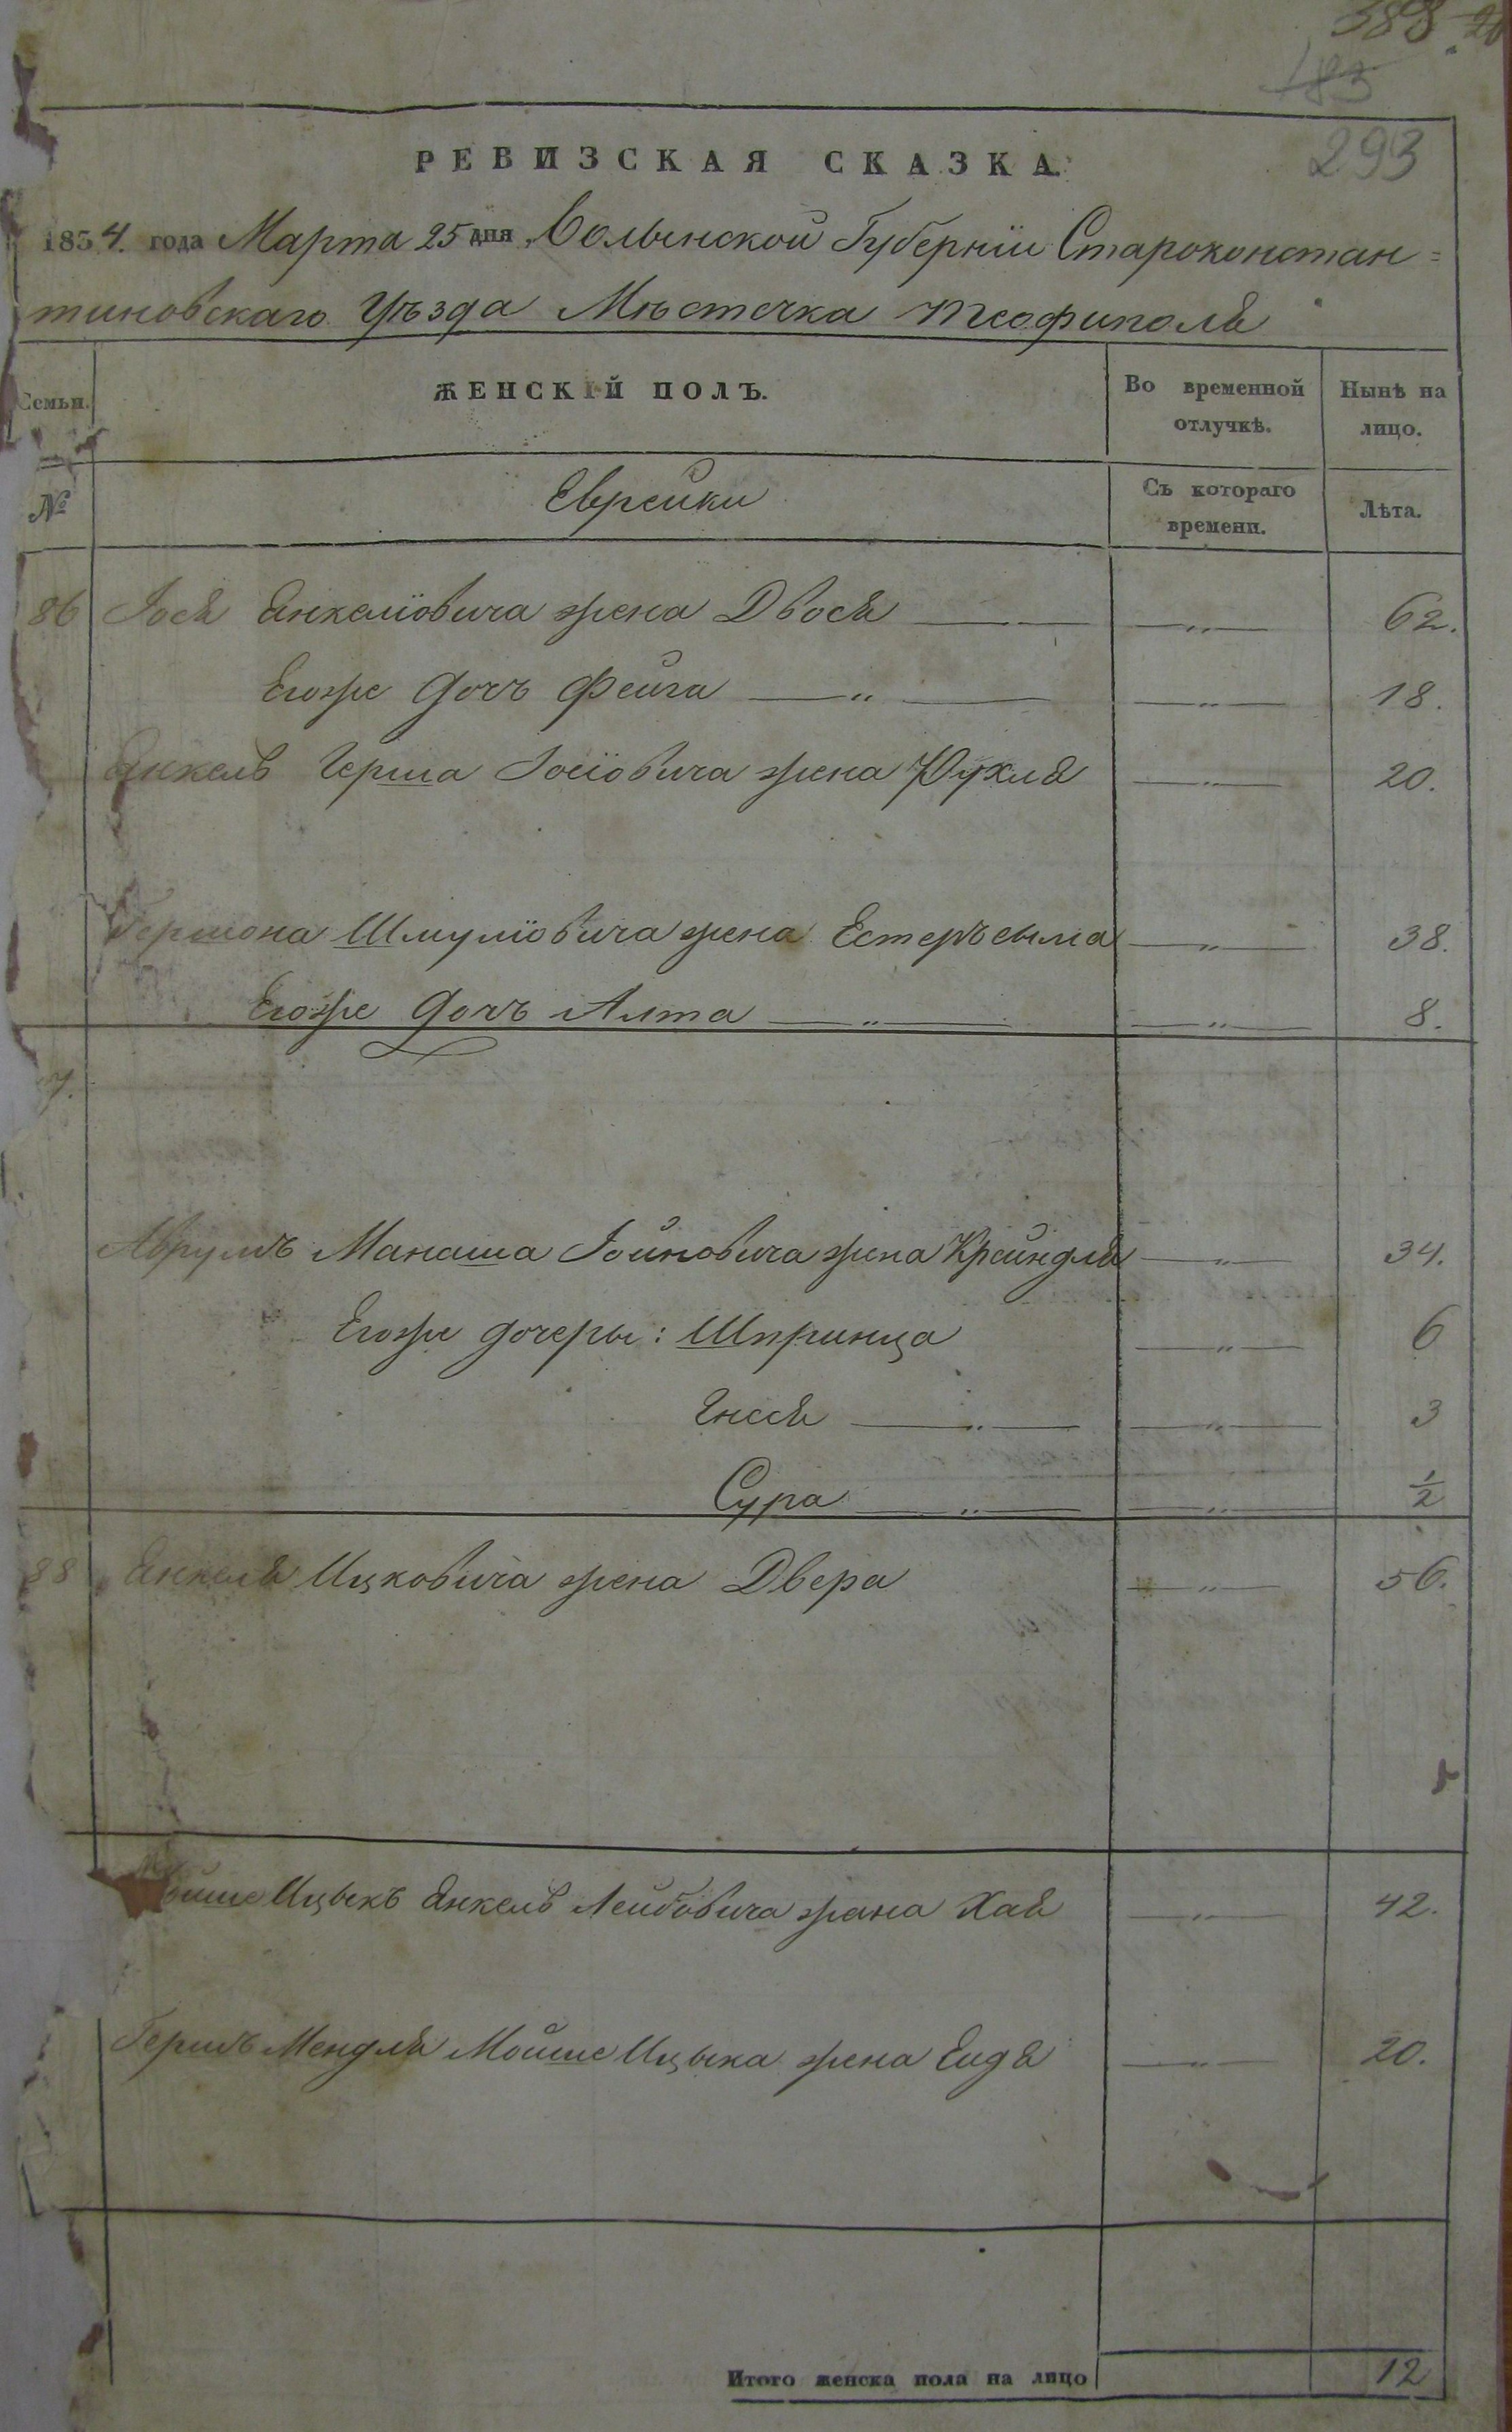 388.
183
293
РЕВИЗСКАЯ СКАЗКА.
1854. года Марта 25 дня, Волынской Губерніи Староконстан=
тиновскаго Уѣзда Мѣстечка Теофиполя
Семьи.
ЖЕНСКІЙ ПОЛЪ.
Во временной отлучкѣ.
Нынѣ на лицо.
№
Еврейки
Съ котораго времени.
Лѣта.
86 Іося Янкеліовича жена Двося — „ — 62.
Егоже дочь Фейга — „ — „ — 18.
Янкель Герша Іосіовича жена Рухля — „ — 20.
Гершона Шмуліовича жена Естеръ сыма — „ — 38.
Егоже дочь Алта — „ — „ — 8.
7.
Аврумъ Манаша Іойновича жена Крейндля — „ — 34.
Егоже дочеры: Шпринца — „ — 6
Енся — „ — „ — 3
Сура — „ — „ — 1/2
88 Янкеля Ицковича жена Двера — „ — 56.
Мойше Ицыкъ Янкель Лейбовича жена Хая — „ — 42.
Гершъ Мендля Мойше Ицыка жена Ейдя — „ — 20.
Итого женска пола на лицо 12